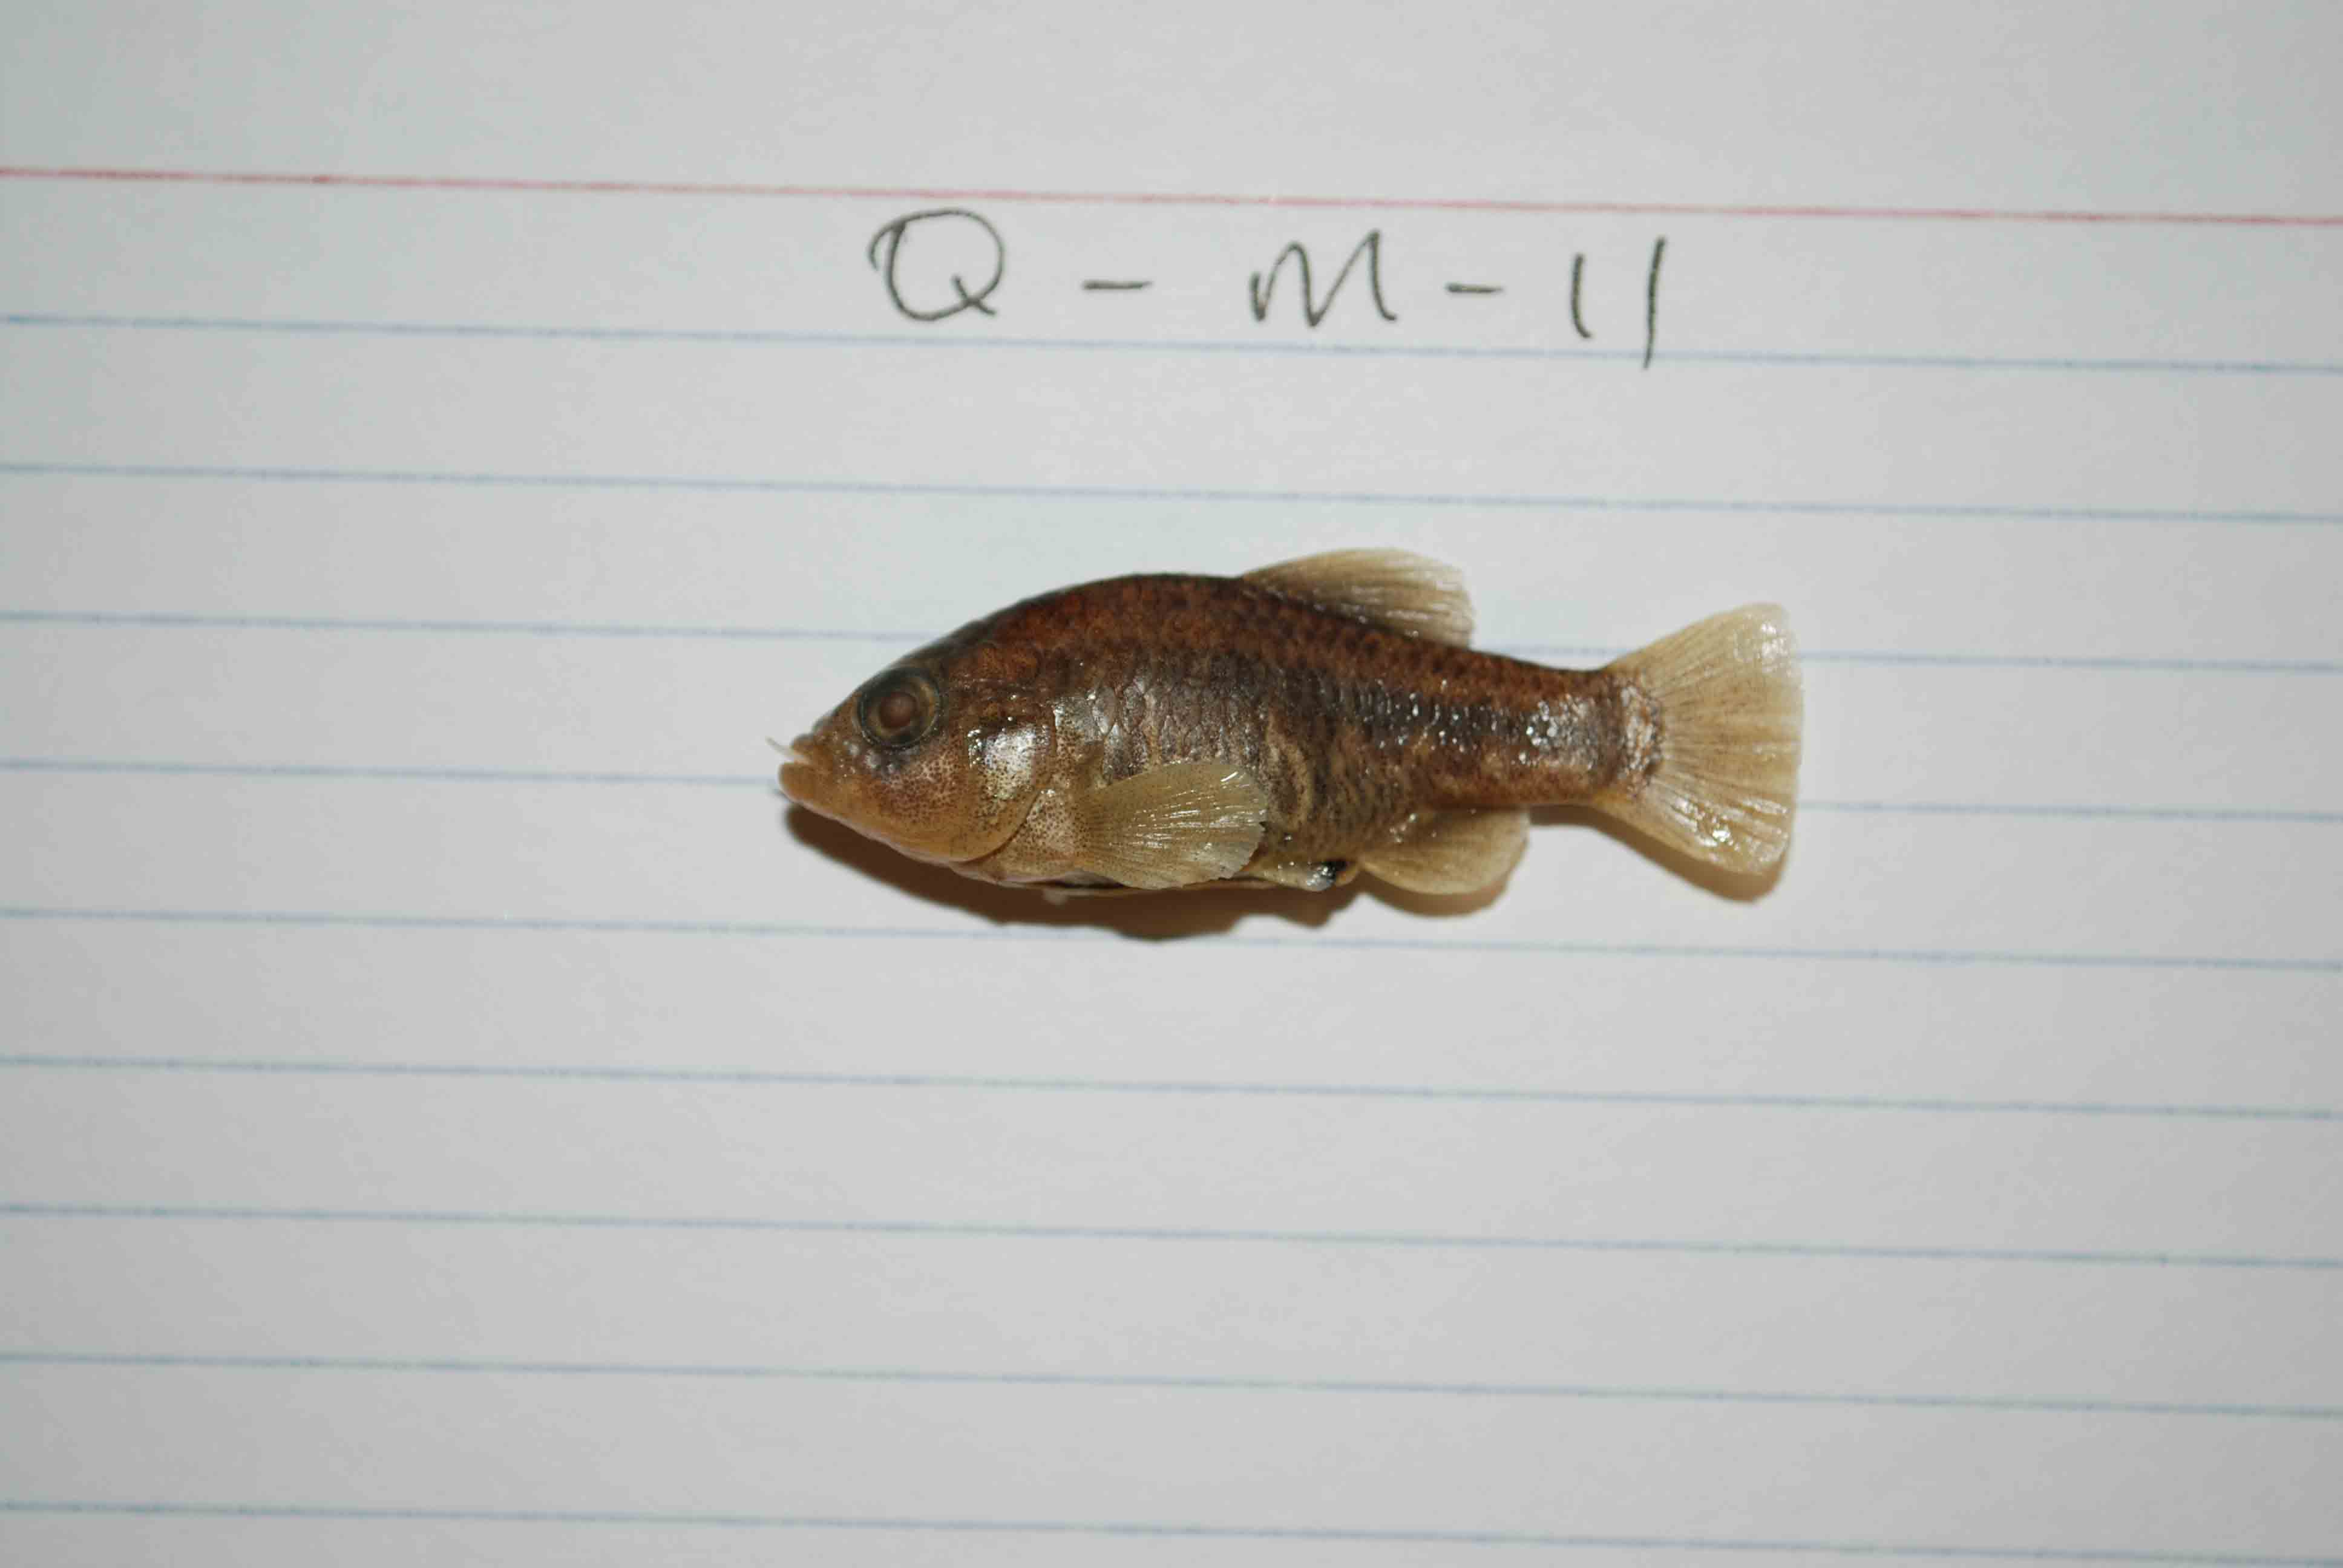 Q - M - 11